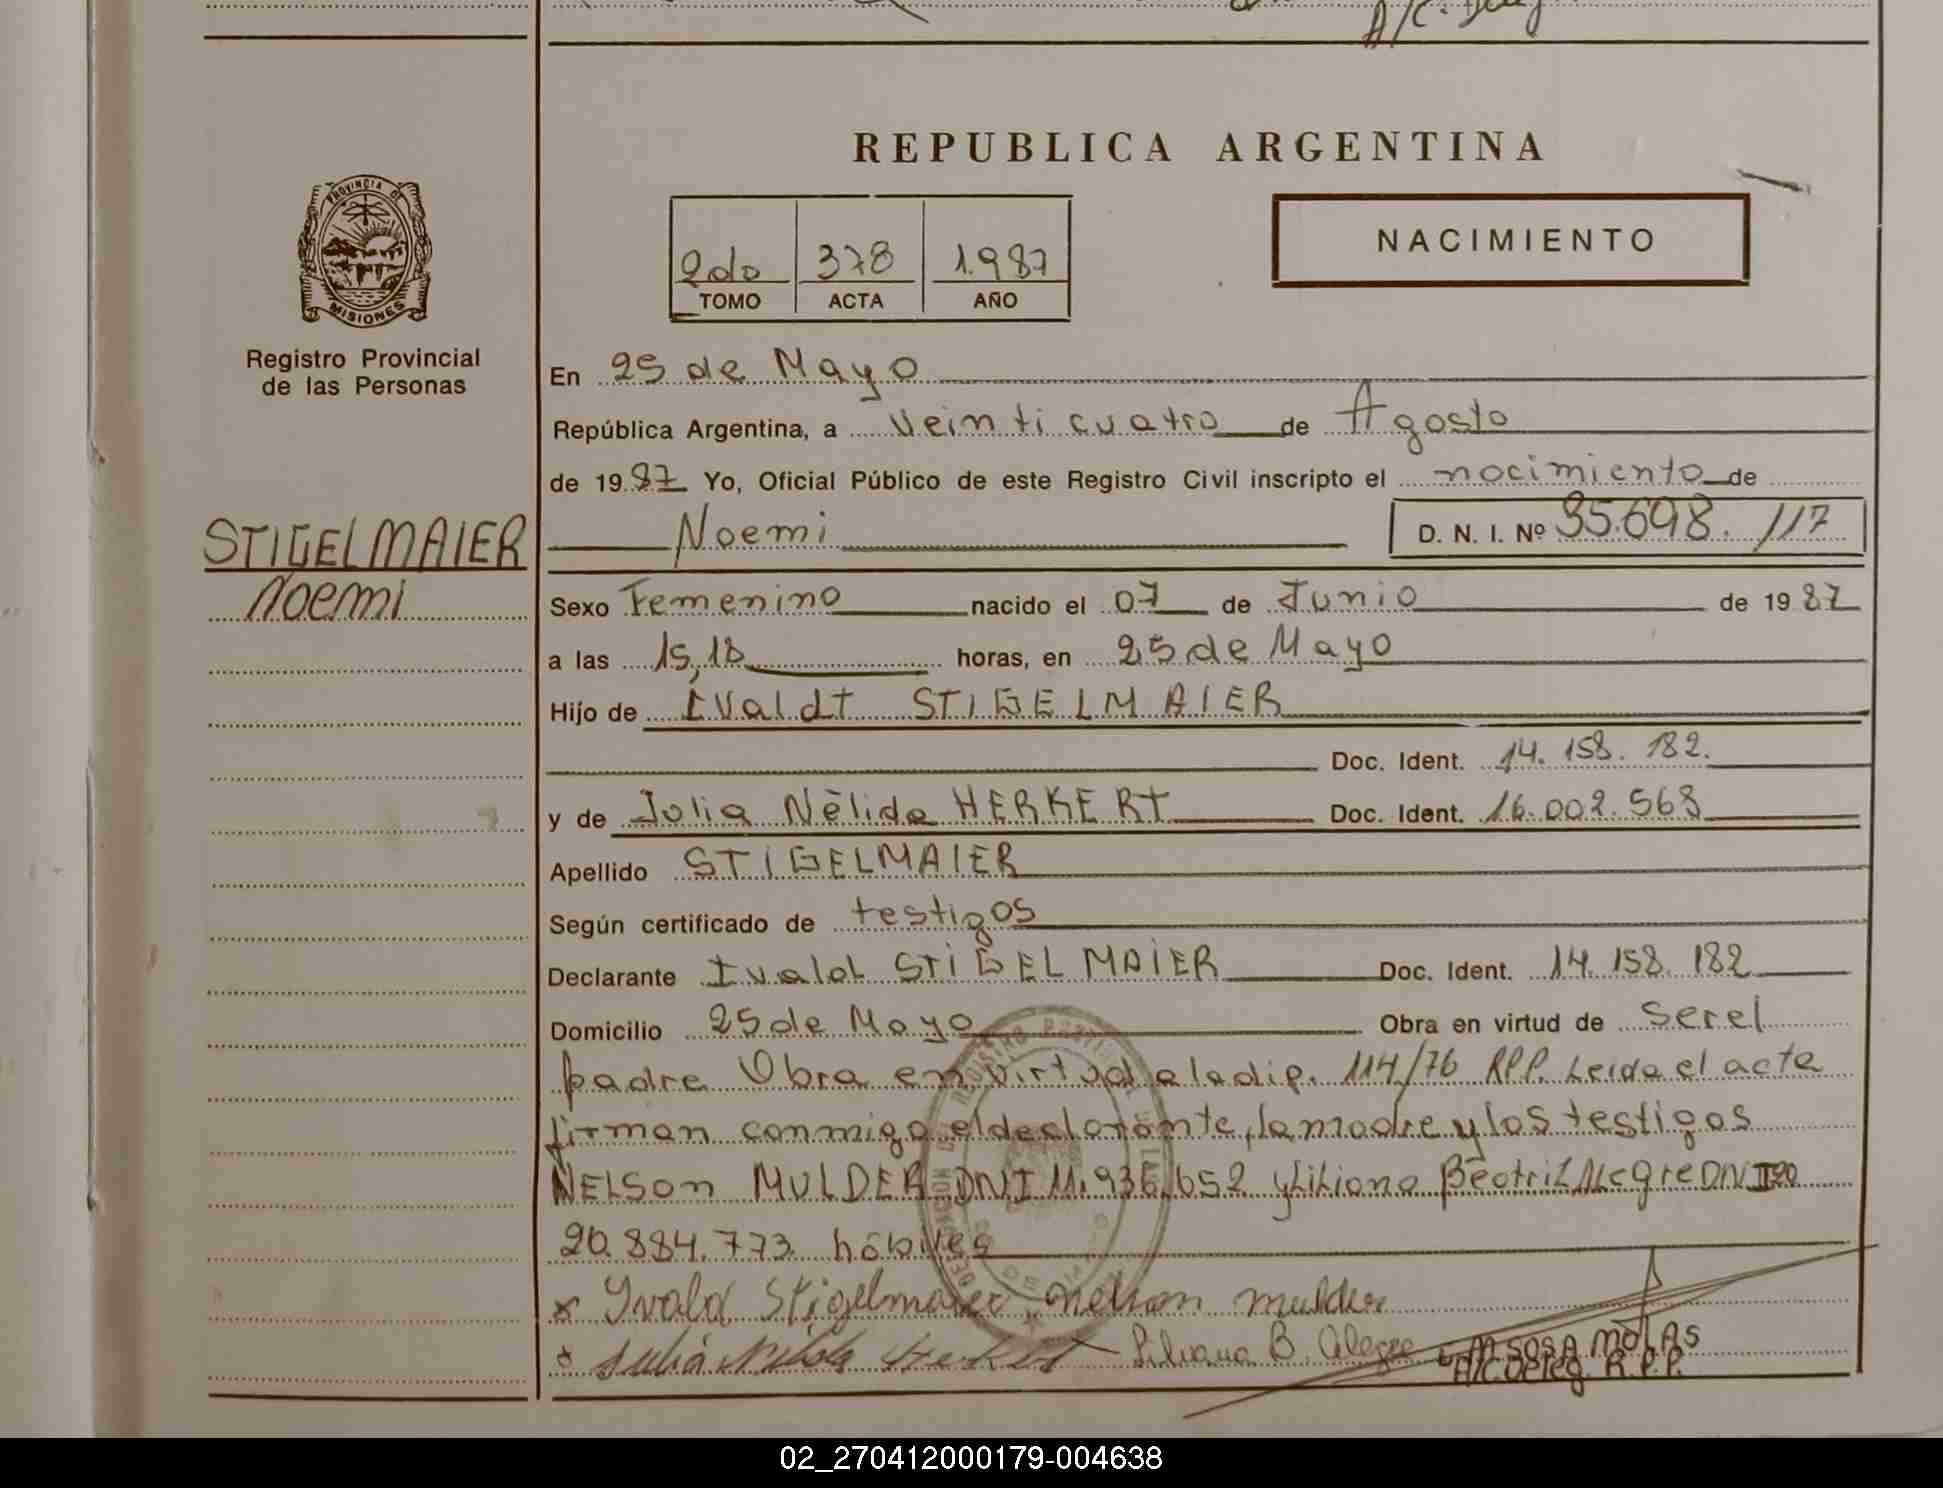 A/C. Deleg
REPUBLICA ARGENTINA
PROVINCIA DE
MISIONES
Registro Provincial
de las Personas
2do 378 1.987
TOMO ACTA AÑO
NACIMIENTO
En 25 de Mayo
República Argentina, a Veinti cuatro de Agosto
de 1987 Yo, Oficial Público de este Registro Civil inscripto el nacimiento de
STIGELMAIER
Noemi
Noemi D. N. I. Nº 35.698.117
Sexo Femenino nacido el 07 de Junio de 1987
a las 15,18 horas, en 25 de Mayo
Hijo de Ivaldt STIGELMAIER
Doc. Ident. 14.158.182.
y de Julia Nèlida HERKERT Doc. Ident. 16.002.568
Apellido STIGELMAIER
Según certificado de testigos
Declarante Ivaldt STIGELMAIER Doc. Ident. 14.158.182
Domicilio 25 de Mayo Obra en virtud de Serel
padre Obra en virtud a la dip. 114/76 RPP. Leida el acta
firman conmigo el declarante, la madre y los testigos
NELSON MULDER DNI 11.936.652 y Liliana Beatriz Alegre DNI 20
20.884.773 hábiles
x Ivald Stigelmaier Nelson mulder
x Julia Nélida Herkert Liliana B. Alegre M SOSA MOLAS
A/C. Deleg. R.P.P.
02_270412000179-004638